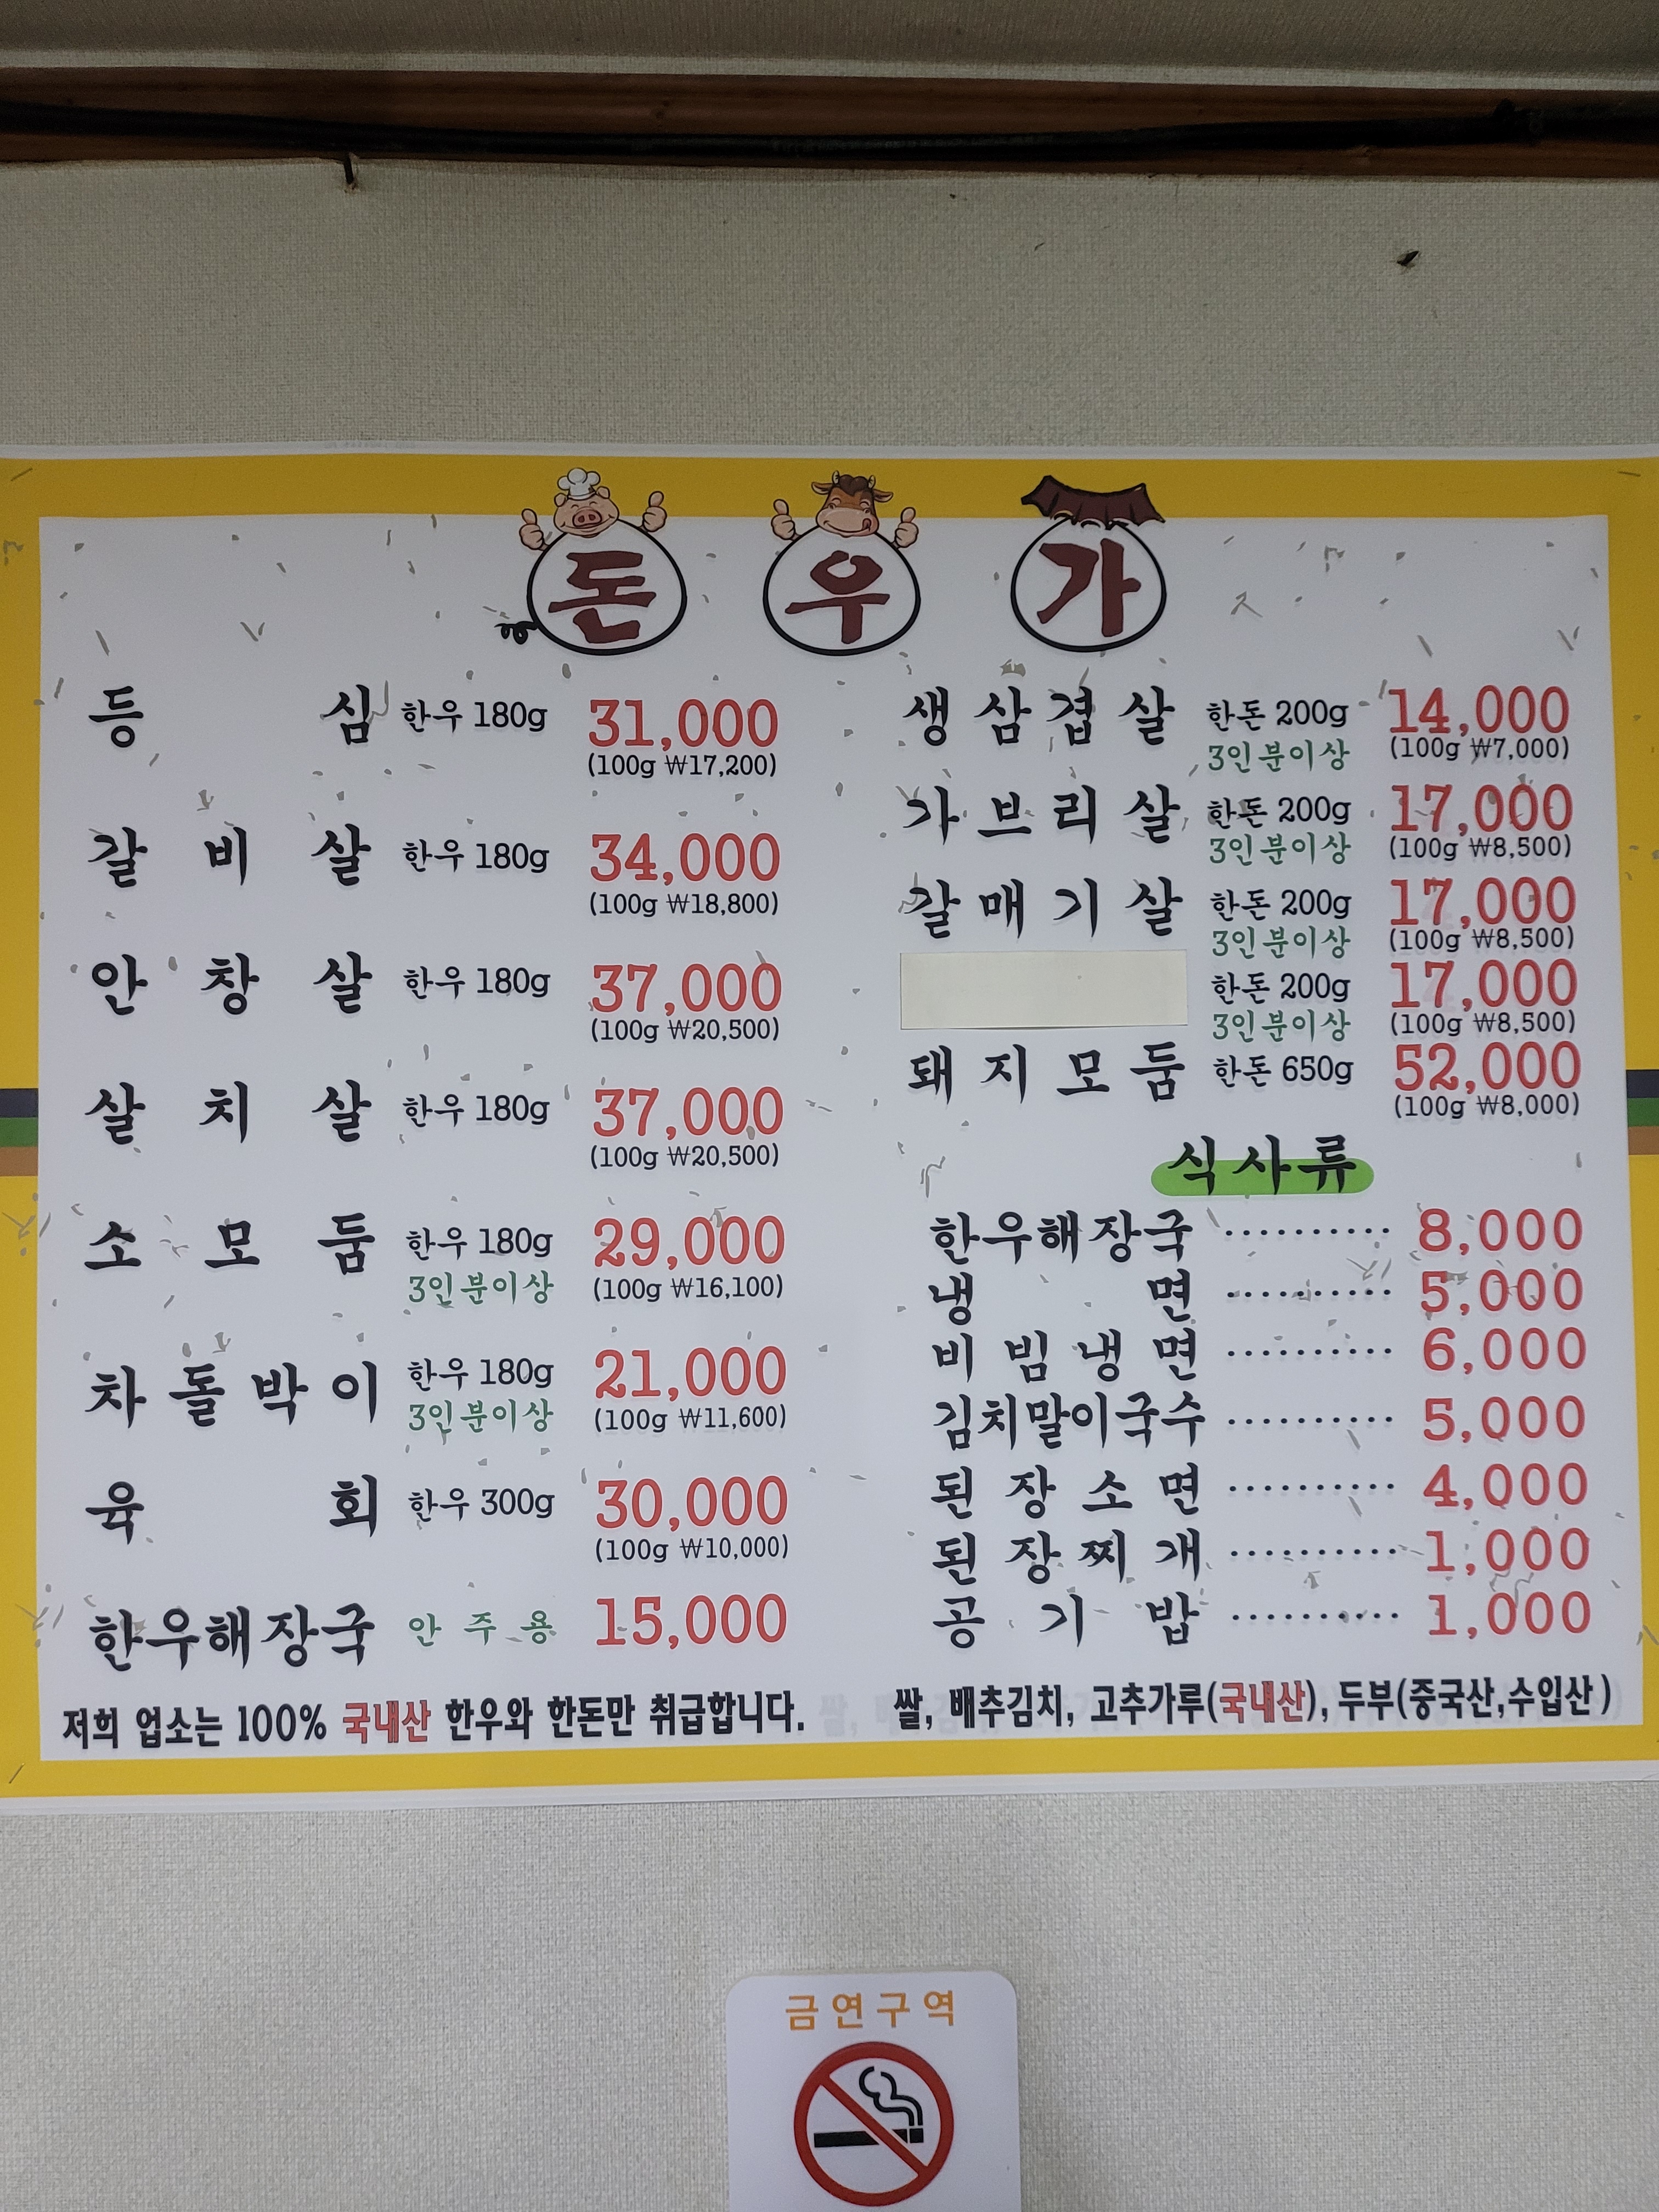 돈우가
등심 한우 180g 31,000
(100g ₩17,200)
갈비살 한우 180g 34,000
(100g ₩18,800)
안창살 한우 180g 37,000
(100g ₩20,500)
살치살 한우 180g 37,000
(100g ₩20,500)
소모둠 한우 180g 29,000
3인분이상 (100g ₩16,100)
차돌박이 한우 180g 21,000
3인분이상 (100g ₩11,600)
육회 한우 300g 30,000
(100g ₩10,000)
한우해장국 안주용 15,000
생삼겹살 한돈 200g 14,000
3인분이상 (100g ₩7,000)
가브리살 한돈 200g 17,000
3인분이상 (100g ₩8,500)
갈매기살 한돈 200g 17,000
3인분이상 (100g ₩8,500)
한돈 200g 17,000
3인분이상 (100g ₩8,500)
돼지모둠 한돈 650g 52,000
(100g ₩8,000)
식사류
한우해장국 ·········· 8,000
냉면 ·········· 5,000
비빔냉면 ·········· 6,000
김치말이국수 ·········· 5,000
된장소면 ·········· 4,000
된장찌개 ·········· 1,000
공기밥 ·········· 1,000
저희 업소는 100% 국내산 한우와 한돈만 취급합니다.
쌀, 배추김치, 고추가루(국내산), 두부(중국산,수입산)
금연구역